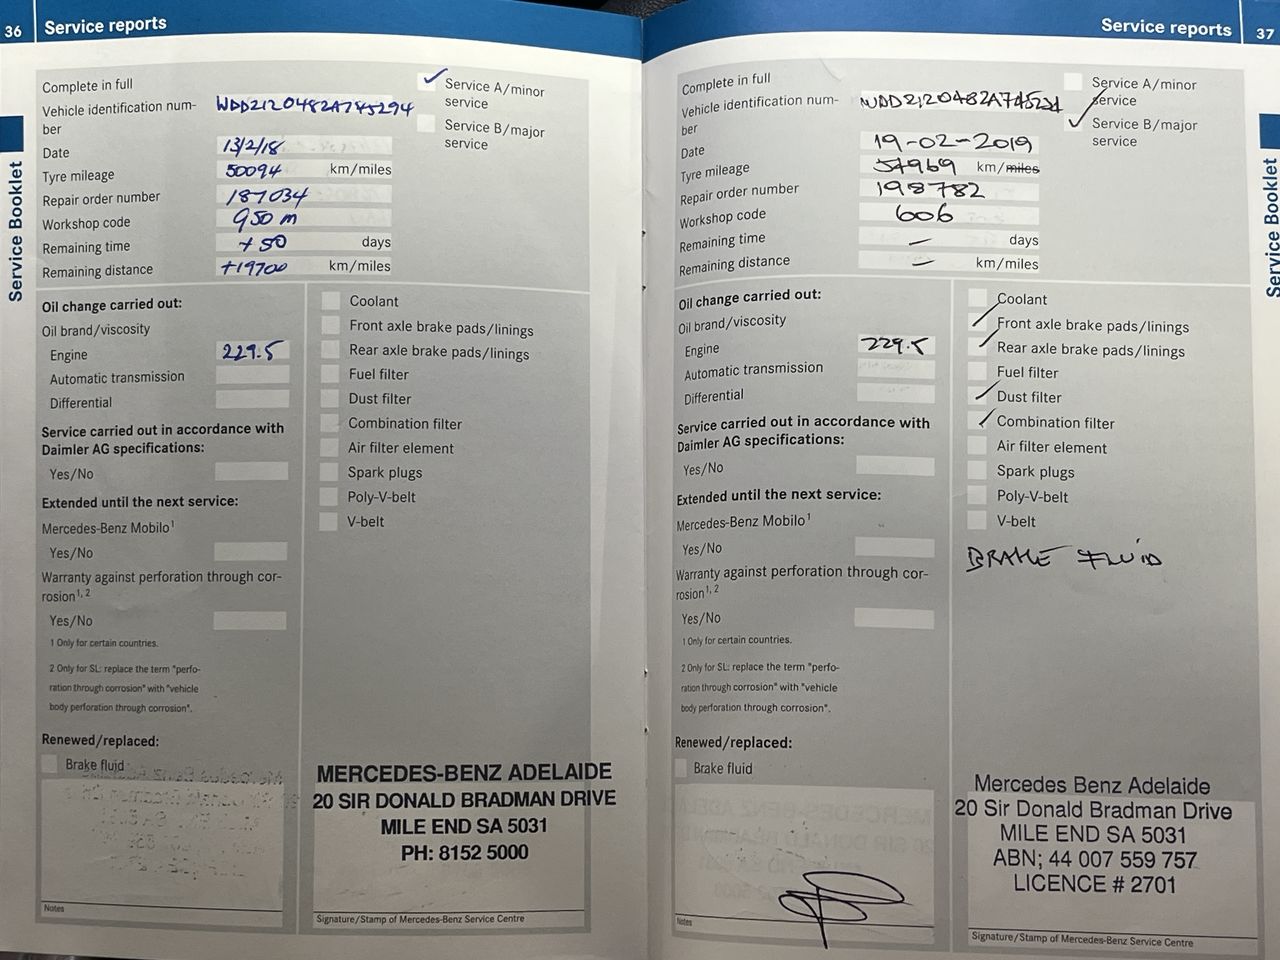 36 Service reports
Complete in full
Service A/minor service
Vehicle identification number WDD2120482A745294
Service B/major service
Date 13/2/18
Tyre mileage 50094 km/miles
Repair order number 187034
Workshop code 950 m
Remaining time +50 days
Remaining distance +19700 km/miles
Oil change carried out:
Oil brand/viscosity
Engine 229.5
Automatic transmission
Differential
Service carried out in accordance with
Daimler AG specifications:
Yes/No
Extended until the next service:
Mercedes-Benz Mobilo1
Yes/No
Warranty against perforation through cor-
rosion1, 2
Yes/No
1 Only for certain countries.
2 Only for SL: replace the term "perfo-
ration through corrosion" with "vehicle
body perforation through corrosion".
Renewed/replaced:
Brake fluid
Notes
Coolant
Front axle brake pads/linings
Rear axle brake pads/linings
Fuel filter
Dust filter
Combination filter
Air filter element
Spark plugs
Poly-V-belt
V-belt
MERCEDES-BENZ ADELAIDE
20 SIR DONALD BRADMAN DRIVE
MILE END SA 5031
PH: 8152 5000
Signature/Stamp of Mercedes-Benz Service Centre
Service Booklet
Service reports 37
Complete in full
Service A/minor service
Vehicle identification number
Service B/major service
Date 19-02-2019
Tyre mileage 57969 km/miles
Repair order number 198782
Workshop code 606
Remaining time — days
Remaining distance — km/miles
Oil change carried out:
Oil brand/viscosity
Engine 229.5
Automatic transmission
Differential
Service carried out in accordance with
Daimler AG specifications:
Yes/No
Extended until the next service:
Mercedes-Benz Mobilo1
Yes/No
Warranty against perforation through cor-
rosion1, 2
Yes/No
1 Only for certain countries.
2 Only for SL: replace the term "perfo-
ration through corrosion" with "vehicle
body perforation through corrosion".
Renewed/replaced:
Brake fluid
Notes
Coolant
Front axle brake pads/linings
Rear axle brake pads/linings
Fuel filter
Dust filter
Combination filter
Air filter element
Spark plugs
Poly-V-belt
V-belt
BRAKE FLUID
Mercedes Benz Adelaide
20 Sir Donald Bradman Drive
MILE END SA 5031
ABN; 44 007 559 757
LICENCE # 2701
Signature/Stamp of Mercedes-Benz Service Centre
Service Booklet